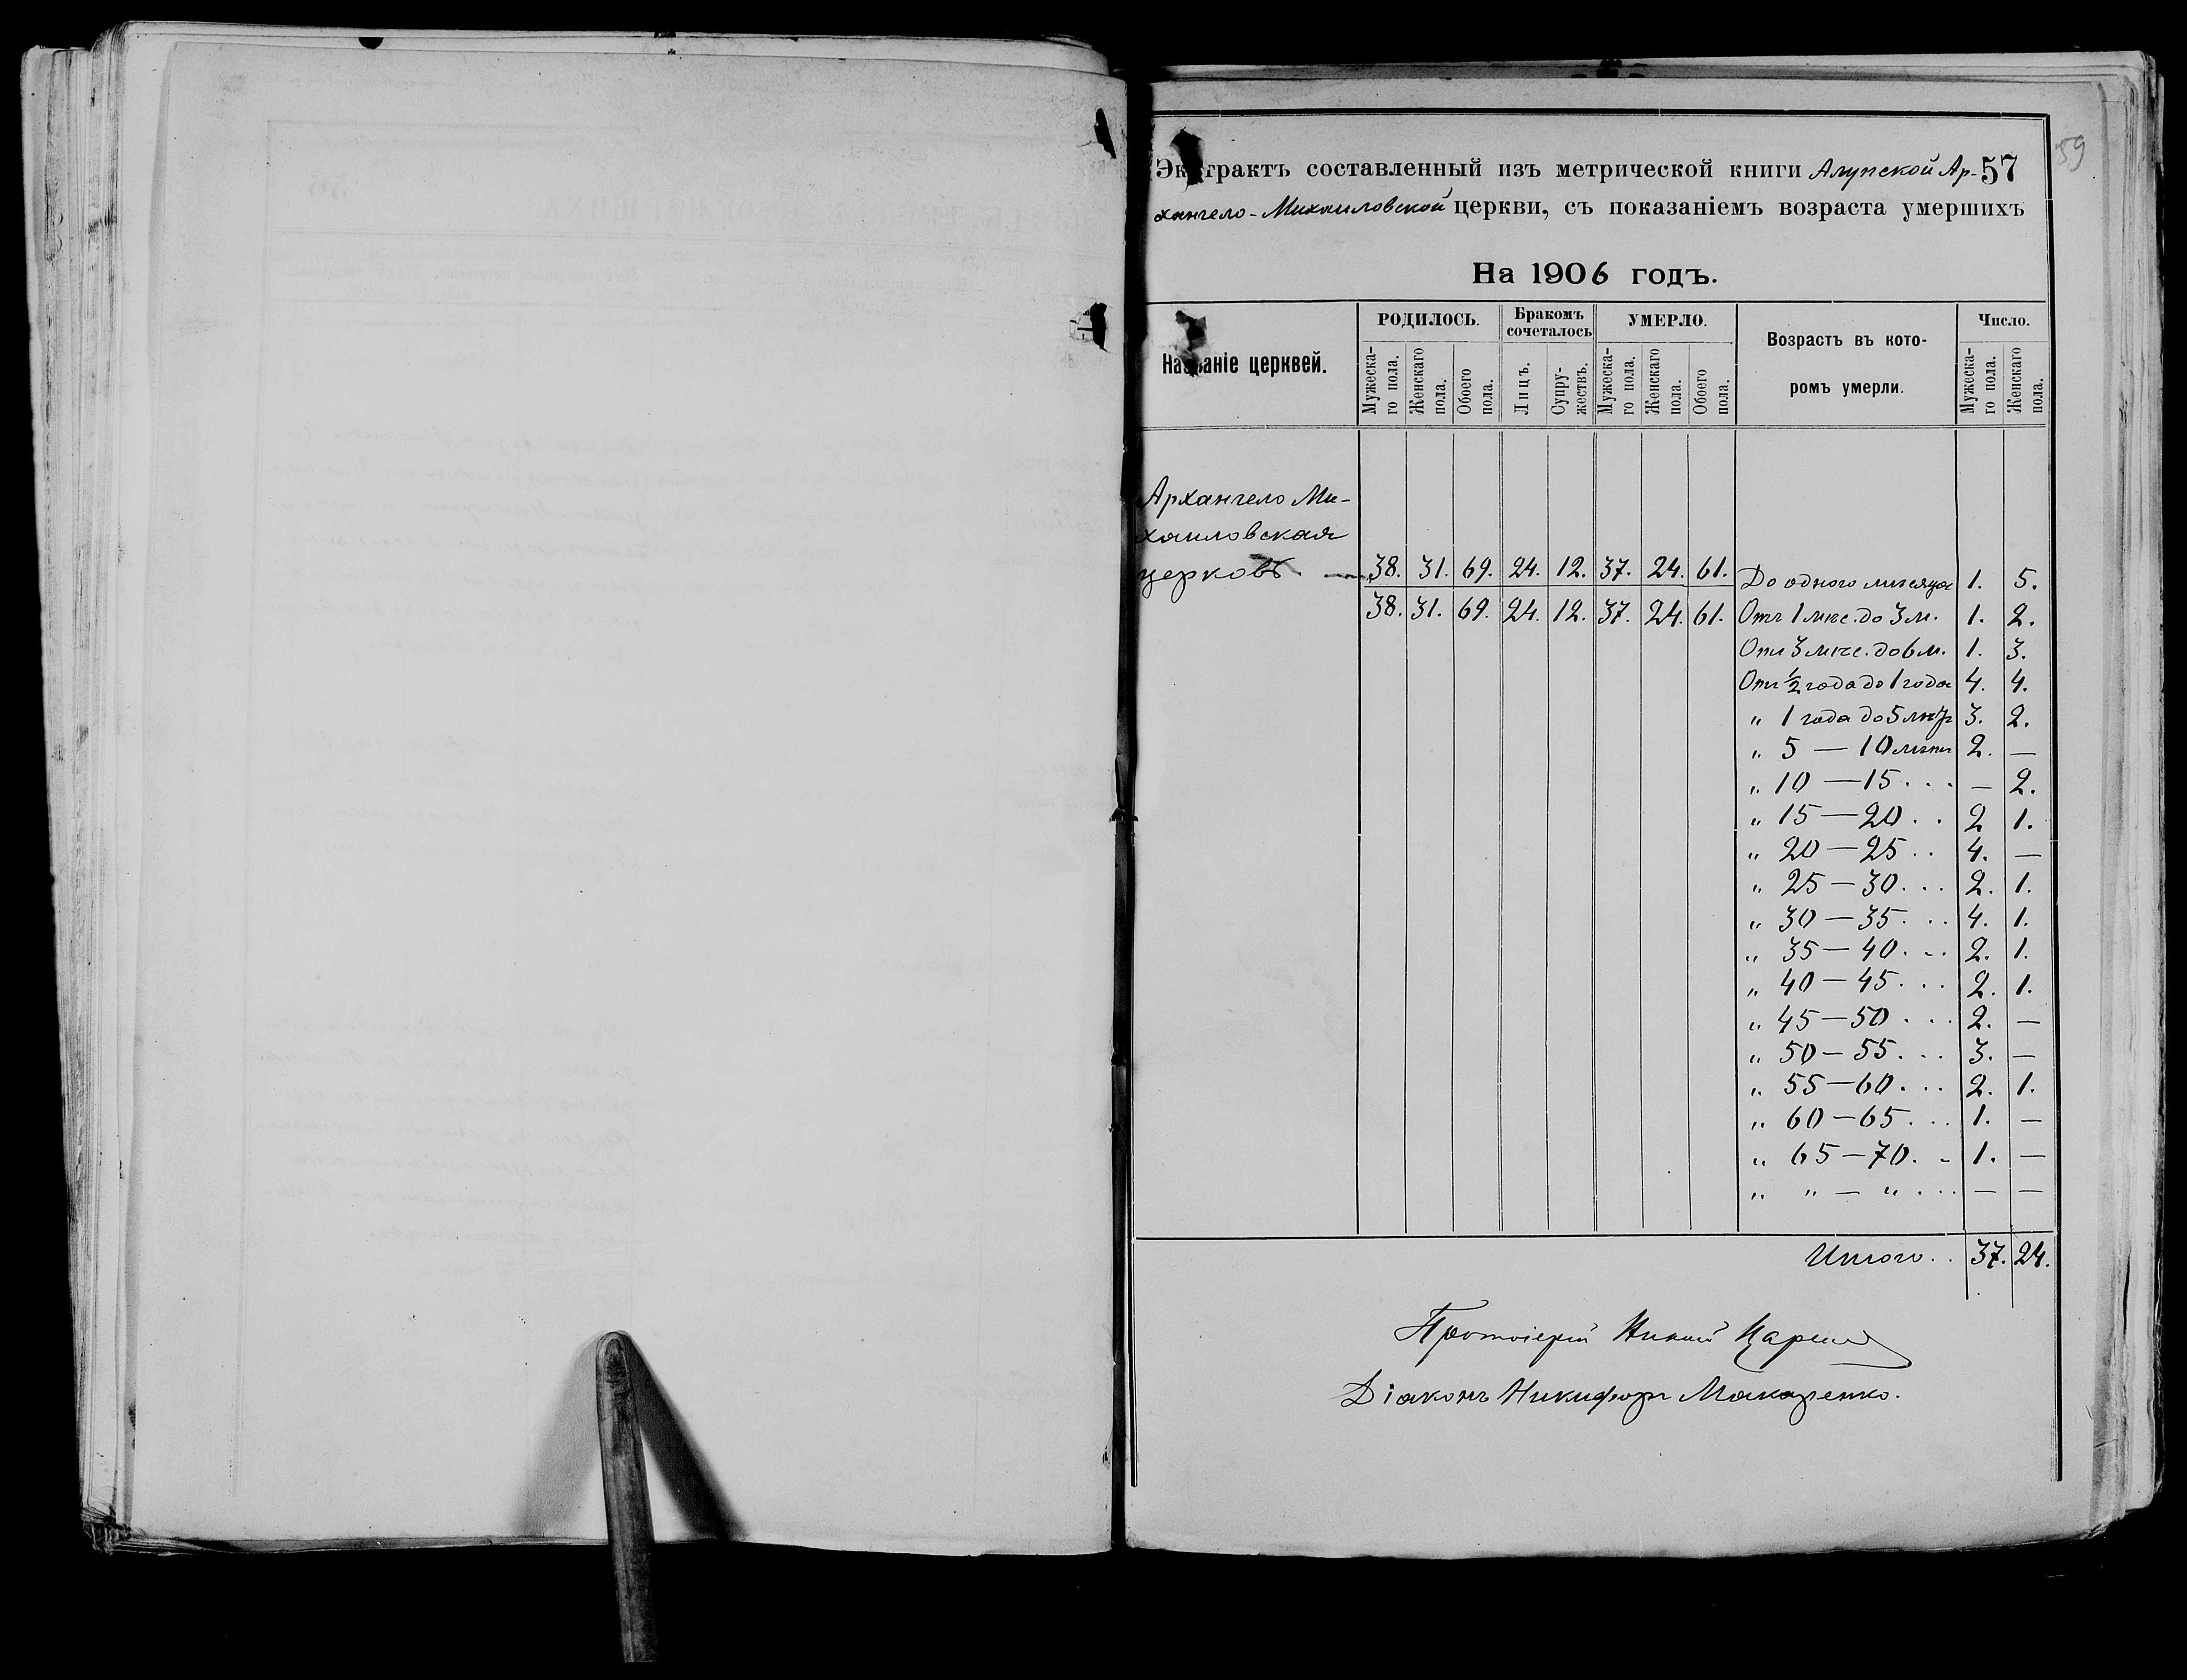 59
Экстрактъ составленный изъ метрической книги Алупской Ар- 57
хангело-Михаиловской церкви, съ показаніемъ возраста умершихъ
На 1906 годъ.
Названіе церквей.
РОДИЛОСЬ.
Мужеска-
го пола.
Женскаго
пола.
Обоего
пола.
Бракомъ
сочеталось
Лицъ.
Супру-
жествъ.
УМЕРЛО.
Мужеска-
го пола.
Женскаго
пола.
Обоего
пола.
Возрастъ въ кото-
ромъ умерли.
Число.
Мужеска-
го пола.
Женскаго
пола.
Архангело Ми-
хаиловская
церковь. — 38. 31. 69. 24. 12. 37. 24. 61.
38. 31. 69. 24. 12. 37. 24. 61.
До одного мѣсяца 1. 5.
Отъ 1 мѣс. до 3 м. 1. 2.
Отъ 3 мѣс. до 6 м. 1. 3.
Отъ ½ года до 1 года 4. 4.
" 1 года до 5 лѣтъ 3. 2.
" 5 — 10 лѣтъ 2. —
" 10 — 15 . . . — 2.
" 15 — 20 . . 2 1.
" 20 — 25 . . 4. —
" 25 — 30 . . . 2. 1.
" 30 — 35 . . . 4. 1.
" 35 — 40 . . . 2. 1.
" 40 — 45 . . . 2. 1.
" 45 — 50 . . . 2. —
" 50 — 55 . . . 3. —
" 55 — 60 . . . 2. 1.
" 60 — 65 . . . 1. —
" 65 — 70 . . 1. —
" " — " . . . — —
Итого . . 37. 24.
Протоіерей
Діаконъ Никифоръ Макаренко.